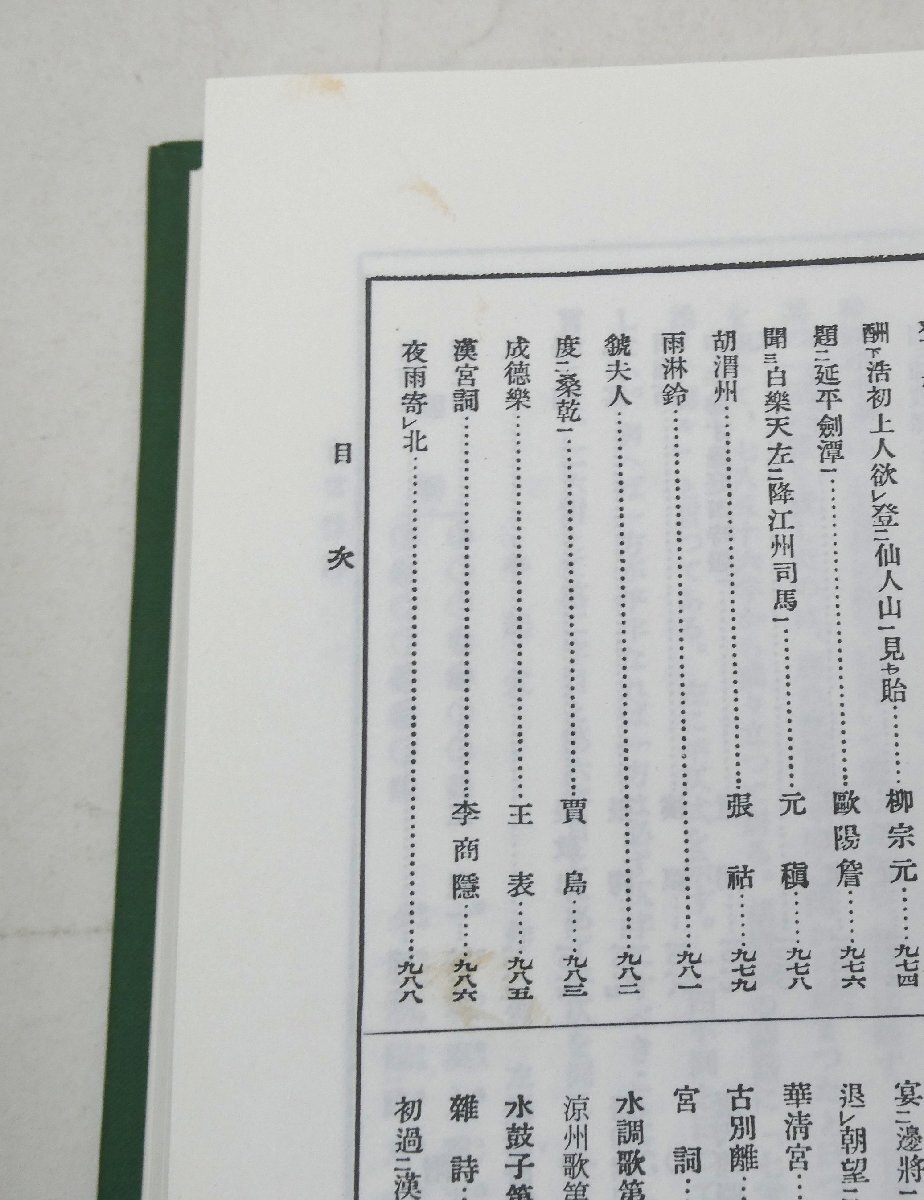 酬下浩初上人欲レ登二仙人山一見上レ貽………柳宗元……九七四
題二延平劍潭一………歐陽詹……九七六
聞三白樂天左二降江州司馬一………元稹……九七八
胡渭州………張祜……九七九
雨淋鈴………九八一
虢夫人………九八二
度二桑乾一………賈島……九八三
成德樂………王表……九八五
漢宮詞………李商隱……九八六
夜雨寄レ北………九八八
宴二邊將一
退レ朝望二
華清宮…
古別離…
宮詞…
水調歌第
涼州歌第
水鼓子第
雜詩…
初過二漢
目次